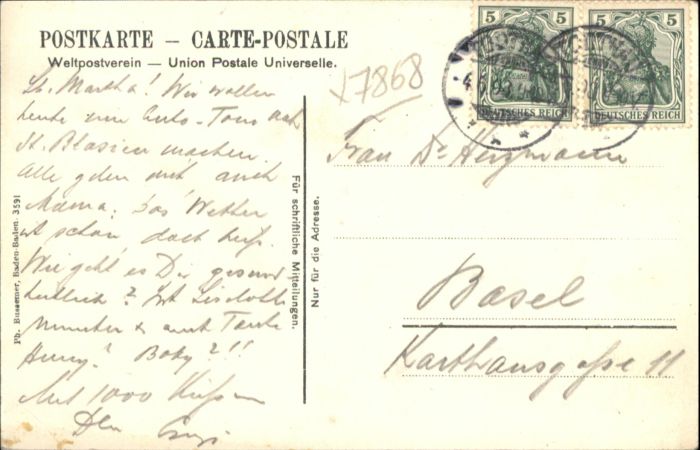 POSTKARTE — CARTE-POSTALE
Weltpostverein — Union Postale Universelle.
5 5
DEUTSCHES REICH
5 5
DEUTSCHES REICH
x7868
Lb. Martha! Wir wollen
heute eine Auto-Tour nach
St. Blasien machen.
Alle gehen mit auch
Mama. Das Wetter
ist schön doch heiß.
Wie geht es Dir gesund
heitlich? Ist Liselotte
munter & auch Tante
Henny? Baby?!!
Mit 1000 Küssen
Dein
Für schriftliche Mitteilungen.
Nur für die Adresse.
Ph. Bussemer, Baden-Baden. 3591
Frau Dr. Herzmann
Basel
Karthausgasse 11